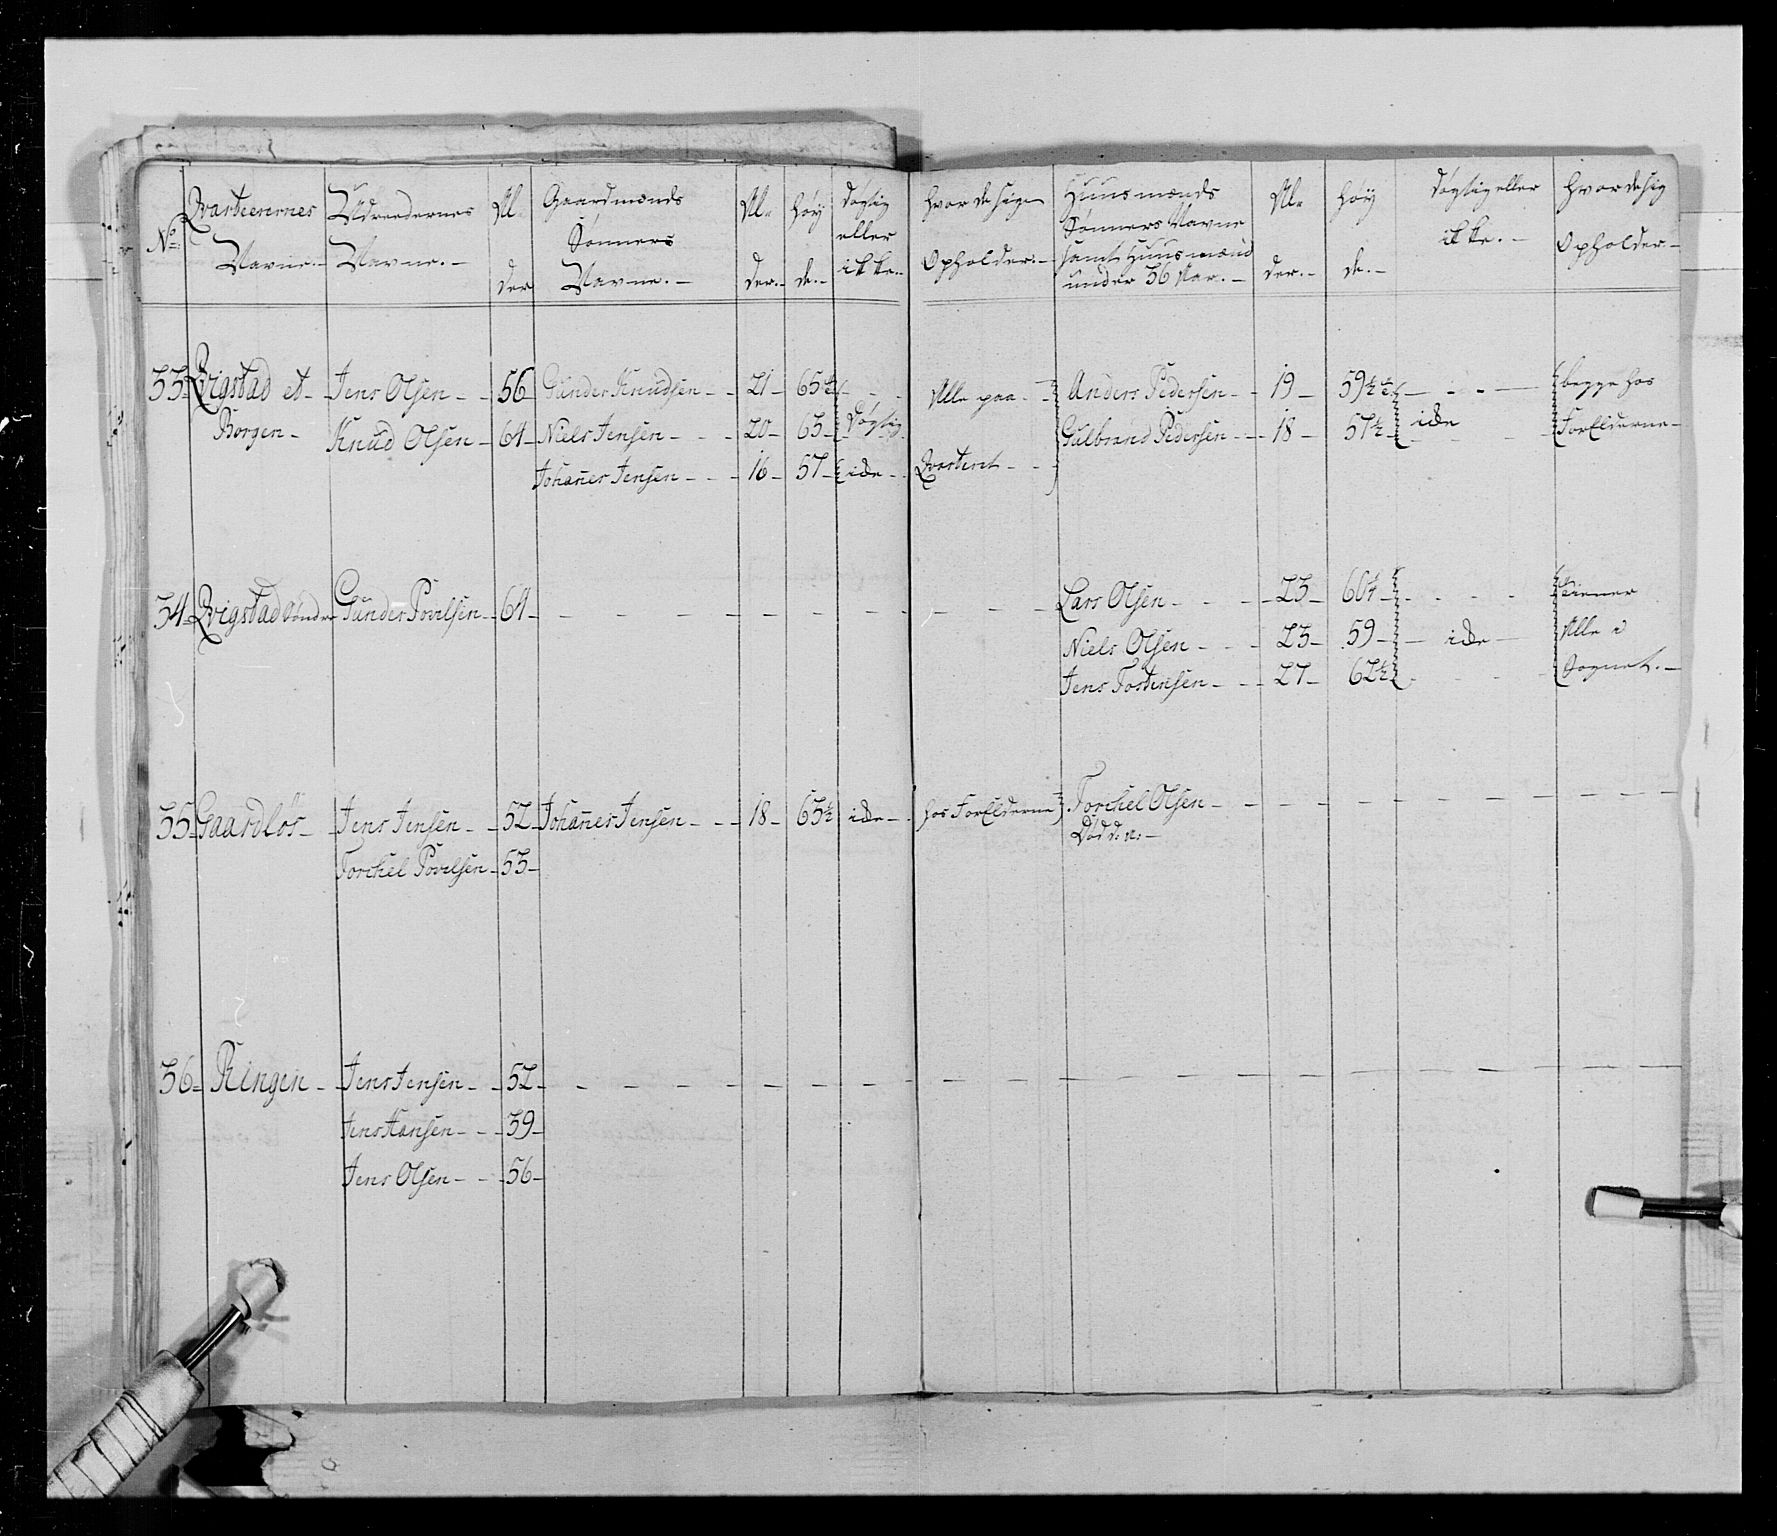 No: Qvarteerernes Navne.- Udreedernes Navne.- Al- der Gaardmænds Sønners Navne.- Al- der.- Høy de.- døgtig eller ikke.- Hvor de sig Opholder.- Huusmænds Sønners Navne samt Huusmænd under 36 Aar.- Al- der.- Høy de.- døgtig eller ikke.- Hvor de sig Opholder-
33- Qvigstad et- Jens Olsen - - 56 Gunder Knudsen - - 21- 65½ - - Alle paa - - Anders Pedersen - - 19 - 59½ - - - begge hos
Borgen - Knud Olsen - 64- Niels Jensen - - - 20- 63- Døgtig Gulbrand Pedersen - - 18 - 57½ - icke ForElderne-
Johanes Jensen - - - 16- 57- icke - Qvarteret - -
34- Qvigstad Søndre Gunder Povelsen - 64- - - - - - - - - Lars Olsen - - - 23- 60¼ - - - Tiener
Niels Olsen - - - 23- 59- - icke - Alle i
Jens Tostensen - - - 27- 62½ - - Sognet.-
35- Gaardløs- Jens Jensen - - 52- Johanes Jensen - - - 18- 63½ icke - hos ForElderne Torchel Olsen - - - - - - -
Død d: a: -
Torchel Povelsen - 53-
36- Ringen - Jens Jensen - - 52- - - - - - - - - - - - - -
Jens Hansen - - - 39-
Jens Olsen - - - 56-